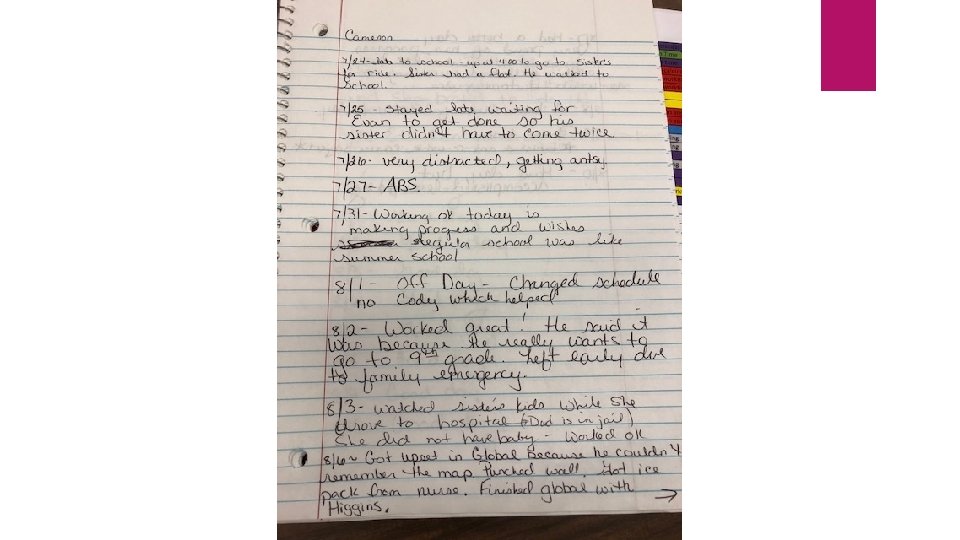 Cameron
7/24- late to school - up at 4:00 to go to sister's
for ride. Sister had a flat. He walked to
school.
7/25 - stayed late waiting for
Evan to get done so his
sister didn't have to come twice
7/26- very distracted, getting antsy
7/27- ABS.
7/31- Working ok today is
making progress and wishes
regular school was like
summer school
8/1 - Off Day - Changed schedule
no Cody which helped
8/2- Worked great! He said it
was because he really wants to
go to 9th grade. Left early due
to family emergency.
8/3- watched sister's kids while she
drove to hospital (Dad is in jail)
She did not have baby - worked ok
8/6- Got upset in Global Because he couldn't
remember the map. Punched wall. Got ice
pack from nurse. Finished global with
Higgins. →